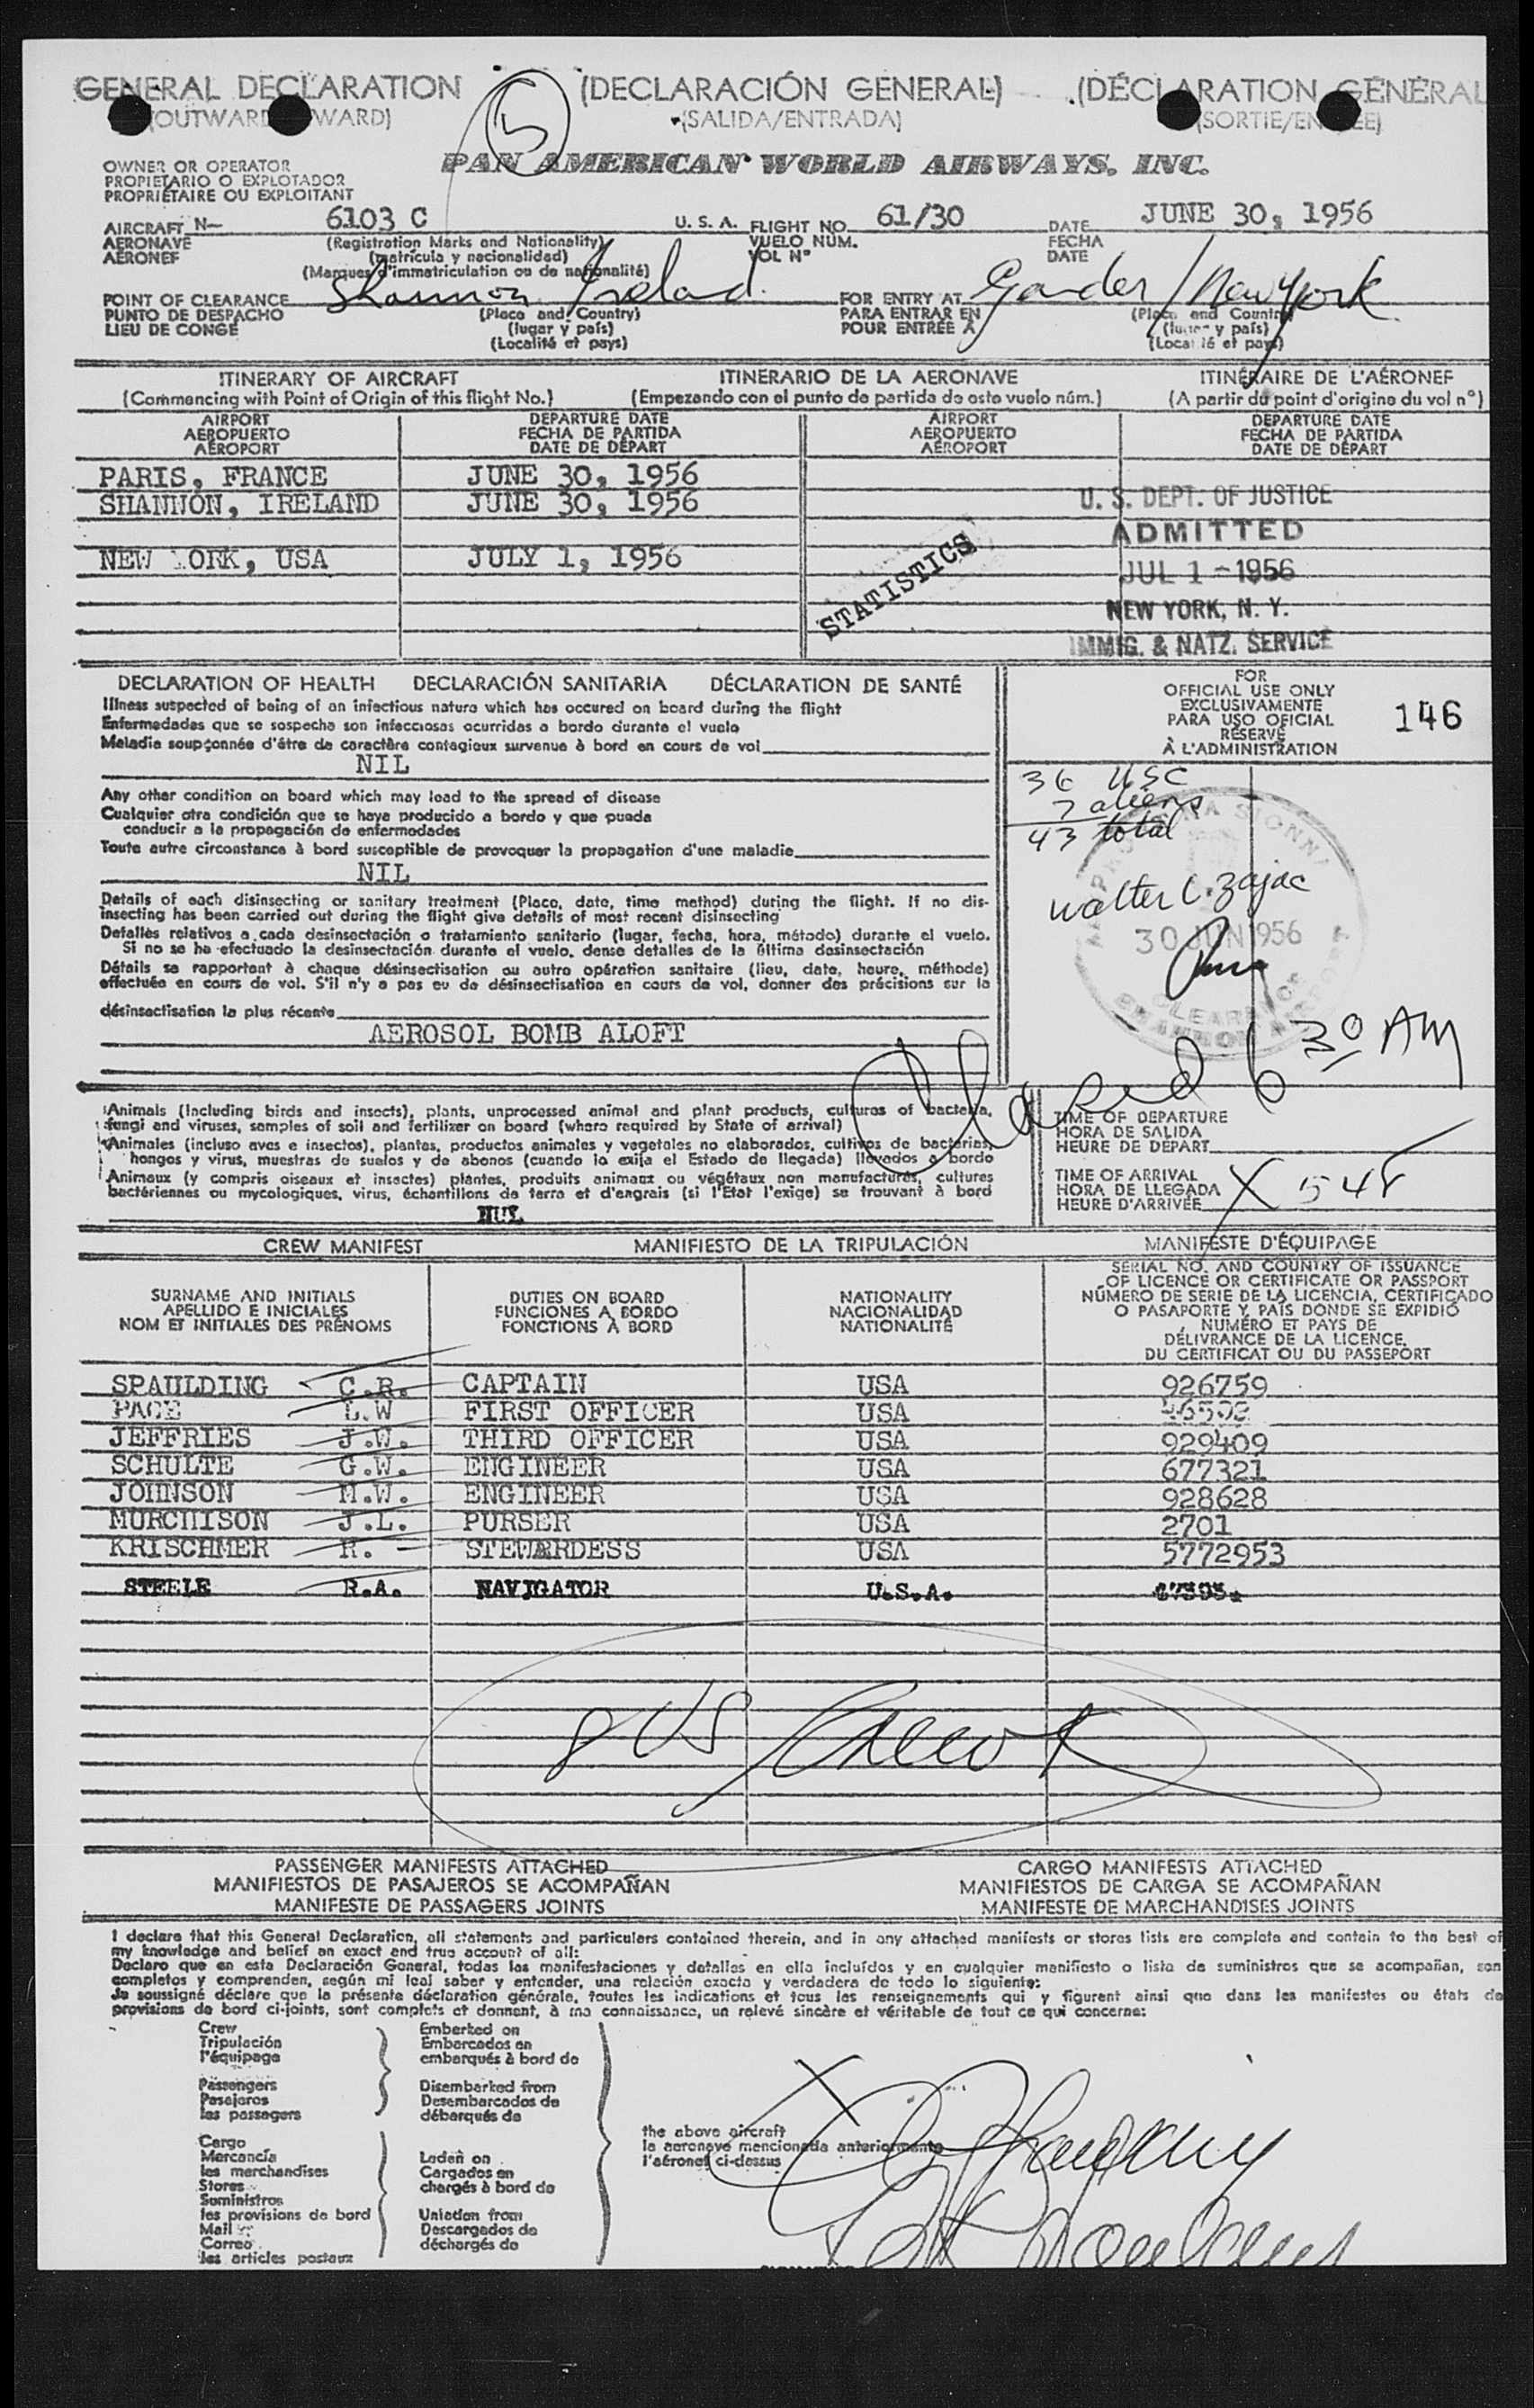 GENERAL DECLARATION (DECLARACIÓN GENERAL) (DÉCLARATION GÉNÉRAL
(OUTWARD WARD) (SALIDA/ENTRADA) (SORTIE/EN ÉE)
5
OWNER OR OPERATOR
PROPIETARIO O EXPLOTADOR
PROPRIÉTAIRE OU EXPLOITANT
PAN AMERICAN WORLD AIRWAYS, INC.
AIRCRAFT N- 6103 C U. S. A. FLIGHT NO. 61/30 DATE JUNE 30, 1956
AERONAVE (Registration Marks and Nationality) VUELO NÚM. FECHA
AÉRONEF (matrícula y nacionalidad) VOL N° DATE
(Marques d'immatriculation ou de nationalité)
POINT OF CLEARANCE Shannon Ireland. FOR ENTRY AT Gander / New York
PUNTO DE DESPACHO (Place and Country) PARA ENTRAR EN (Place and Country)
LIEU DE CONGÉ (lugar y país) POUR ENTRÉE À (lugar y país)
(Localité et pays) (Localité et pays)
ITINERARY OF AIRCRAFT ITINERARIO DE LA AERONAVE ITINÉRAIRE DE L'AÉRONEF
(Commencing with Point of Origin of this flight No.) (Empezando con el punto de partida de este vuelo núm.) (A partir du point d'origine du vol n°)
AIRPORT DEPARTURE DATE AIRPORT DEPARTURE DATE
AEROPUERTO FECHA DE PARTIDA AEROPUERTO FECHA DE PARTIDA
AÉROPORT DATE DE DÉPART AÉROPORT DATE DE DÉPART
PARIS, FRANCE JUNE 30, 1956
SHANNON, IRELAND JUNE 30, 1956
NEW ORK, USA JULY 1, 1956
STATISTICS
U. S. DEPT. OF JUSTICE
ADMITTED
JUL 1 - 1956
NEW YORK, N. Y.
IMMIG. & NATZ. SERVICE
DECLARATION OF HEALTH DECLARACIÓN SANITARIA DÉCLARATION DE SANTÉ
Illness suspected of being of an infectious nature which has occured on board during the flight
Enfermedades que se sospecha son infecciosas ocurridas a bordo durante el vuelo
Maladie soupçonnée d'être de caractère contagieux survenue à bord en cours de vol
NIL
Any other condition on board which may lead to the spread of disease
Cualquier otra condición que se haya producido a bordo y que pueda
conducir a la propagación de enfermedades
Toute autre circonstance à bord susceptible de provoquer la propagation d'une maladie
NIL
Details of each disinsecting or sanitary treatment (Place, date, time method) during the flight. If no dis-
insecting has been carried out during the flight give details of most recent disinsecting
Detalles relativos a cada desinsectación o tratamiento sanitario (lugar, fecha, hora, método) durante el vuelo.
Si no se ha efectuado la desinsectación durante el vuelo, dense detalles de la última desinsectación
Détails se rapportant à chaque désinsectisation ou autre opération sanitaire (lieu, date, heure, méthode)
effectuée en cours de vol. S'il n'y a pas eu de désinsectisation en cours de vol, donner des précisions sur la
désinsectisation la plus récente
AEROSOL BOMB ALOFT
FOR
OFFICIAL USE ONLY
EXCLUSIVAMENTE
PARA USO OFICIAL
RÉSERVÉ
À L'ADMINISTRATION
146
36 USC
7 aliens
43 total
Walter C. Zajac
30 JUN 1956
Closed 6 30 AM
Animals (Including birds and insects), plants, unprocessed animal and plant products, cultures of bacteria,
fungi and viruses, samples of soil and fertilizer on board (where required by State of arrival)
Animales (incluso aves e insectos), plantas, productos animales y vegetales no elaborados, cultivos de bacterias,
hongos y virus, muestras de suelos y de abonos (cuando lo exija el Estado de llegada) llevados a bordo
Animaux (y compris oiseaux et insectes) plantes, produits animaux ou végétaux non manufacturés, cultures
bactériennes ou mycologiques, virus, échantillons de terre et d'engrais (si l'Etat l'exige) se trouvant à bord
TIME OF DEPARTURE
HORA DE SALIDA
HEURE DE DÉPART
TIME OF ARRIVAL
HORA DE LLEGADA X 548
HEURE D'ARRIVÉE
CREW MANIFEST MANIFIESTO DE LA TRIPULACIÓN MANIFESTE D'ÉQUIPAGE
SURNAME AND INITIALS
APELLIDO E INICIALES
NOM ET INITIALES DES PRÉNOMS
DUTIES ON BOARD
FUNCIONES A BORDO
FONCTIONS À BORD
NATIONALITY
NACIONALIDAD
NATIONALITÉ
SERIAL NO. AND COUNTRY OF ISSUANCE
OF LICENCE OR CERTIFICATE OR PASSPORT
NÚMERO DE SERIE DE LA LICENCIA, CERTIFICADO
O PASAPORTE Y PAÍS DONDE SE EXPIDIÓ
NUMÉRO ET PAYS DE
DÉLIVRANCE DE LA LICENCE,
DU CERTIFICAT OU DU PASSEPORT
SPAULDING C.R. CAPTAIN USA 926759
PAGE L.W FIRST OFFICER USA
JEFFRIES J.W. THIRD OFFICER USA 929409
SCHULTE G.W. ENGINEER USA 677321
JOHNSON M.W. ENGINEER USA 928628
MURCHISON J.L. PURSER USA 2701
KRISCHMER R. STEWARDESS USA 5772953
STEELE R.A. NAVIGATOR U.S.A.
8 US Crew
PASSENGER MANIFESTS ATTACHED CARGO MANIFESTS ATTACHED
MANIFIESTOS DE PASAJEROS SE ACOMPAÑAN MANIFIESTOS DE CARGA SE ACOMPAÑAN
MANIFESTE DE PASSAGERS JOINTS MANIFESTE DE MARCHANDISES JOINTS
I declare that this General Declaration, all statements and particulars contained therein, and in any attached manifests or stores lists are complete and contain to the best of
my knowledge and belief an exact and true account of all:
Declaro que en esta Declaración General, todas las manifestaciones y detalles en ella incluídos y en cualquier manifiesto o lista de suministros que se acompañan, son
completos y comprenden, según mi leal saber y entender, una relación exacta y verdadera de todo lo siguiente:
Je soussigné déclare que la présente déclaration générale, toutes les indications et tous les renseignements qui y figurent ainsi que dans les manifestes ou états de
provisions de bord ci-joints, sont complets et donnent, à ma connaissance, un relevé sincère et véritable de tout ce qui concerne:
Crew Embarked on
Tripulación Embarcados en
l'équipage embarqués à bord de
Passengers Disembarked from
Pasajeros Desembarcados de
les passagers débarqués de
the above aircraft
la aeronave mencionada anteriormente
l'aéronef ci-dessus
Cargo
Mercancía Laden on
les marchandises Cargados en
Stores chargés à bord de
Suministros
les provisions de bord Unladen from
Mail Descargados de
Correo déchargés de
les articles postaux